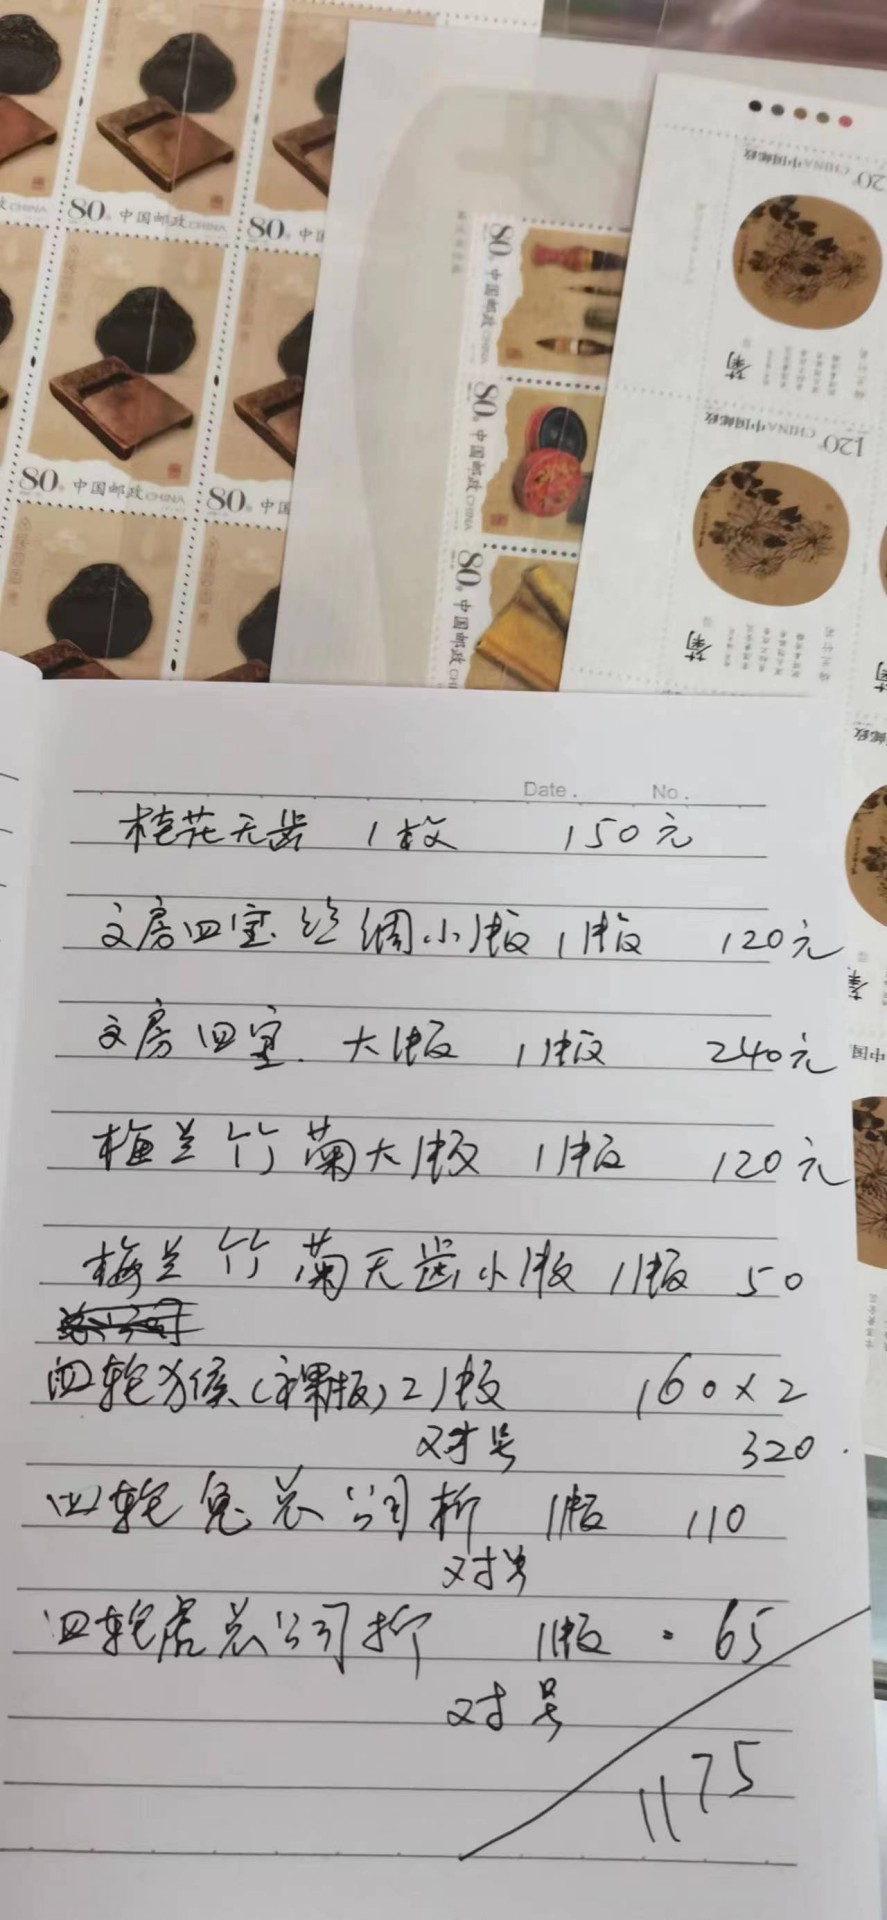 80分 中国邮政 CHINA
80分 中国
80分 中国邮政 CHINA
80分 中国
80分 中国邮政 CHINA
80分 中国邮政 CHINA
80分 中国邮政
120分 中国邮政 CHINA
菊
120分 中国邮政 CHINA
菊
Date. No.
桂花无齿 1枚 150元
文房四宝丝绸小版 1版 120元
文房四宝. 大版 1版 240元
梅兰竹菊大版 1版 120元
梅兰竹菊无齿小版 1版 50
四轮猴(裸版)2版 160×2
对号 320.
四轮兔总公司折 1版 110
对号
四轮虎总公司折 1版 · 65
对号
1175